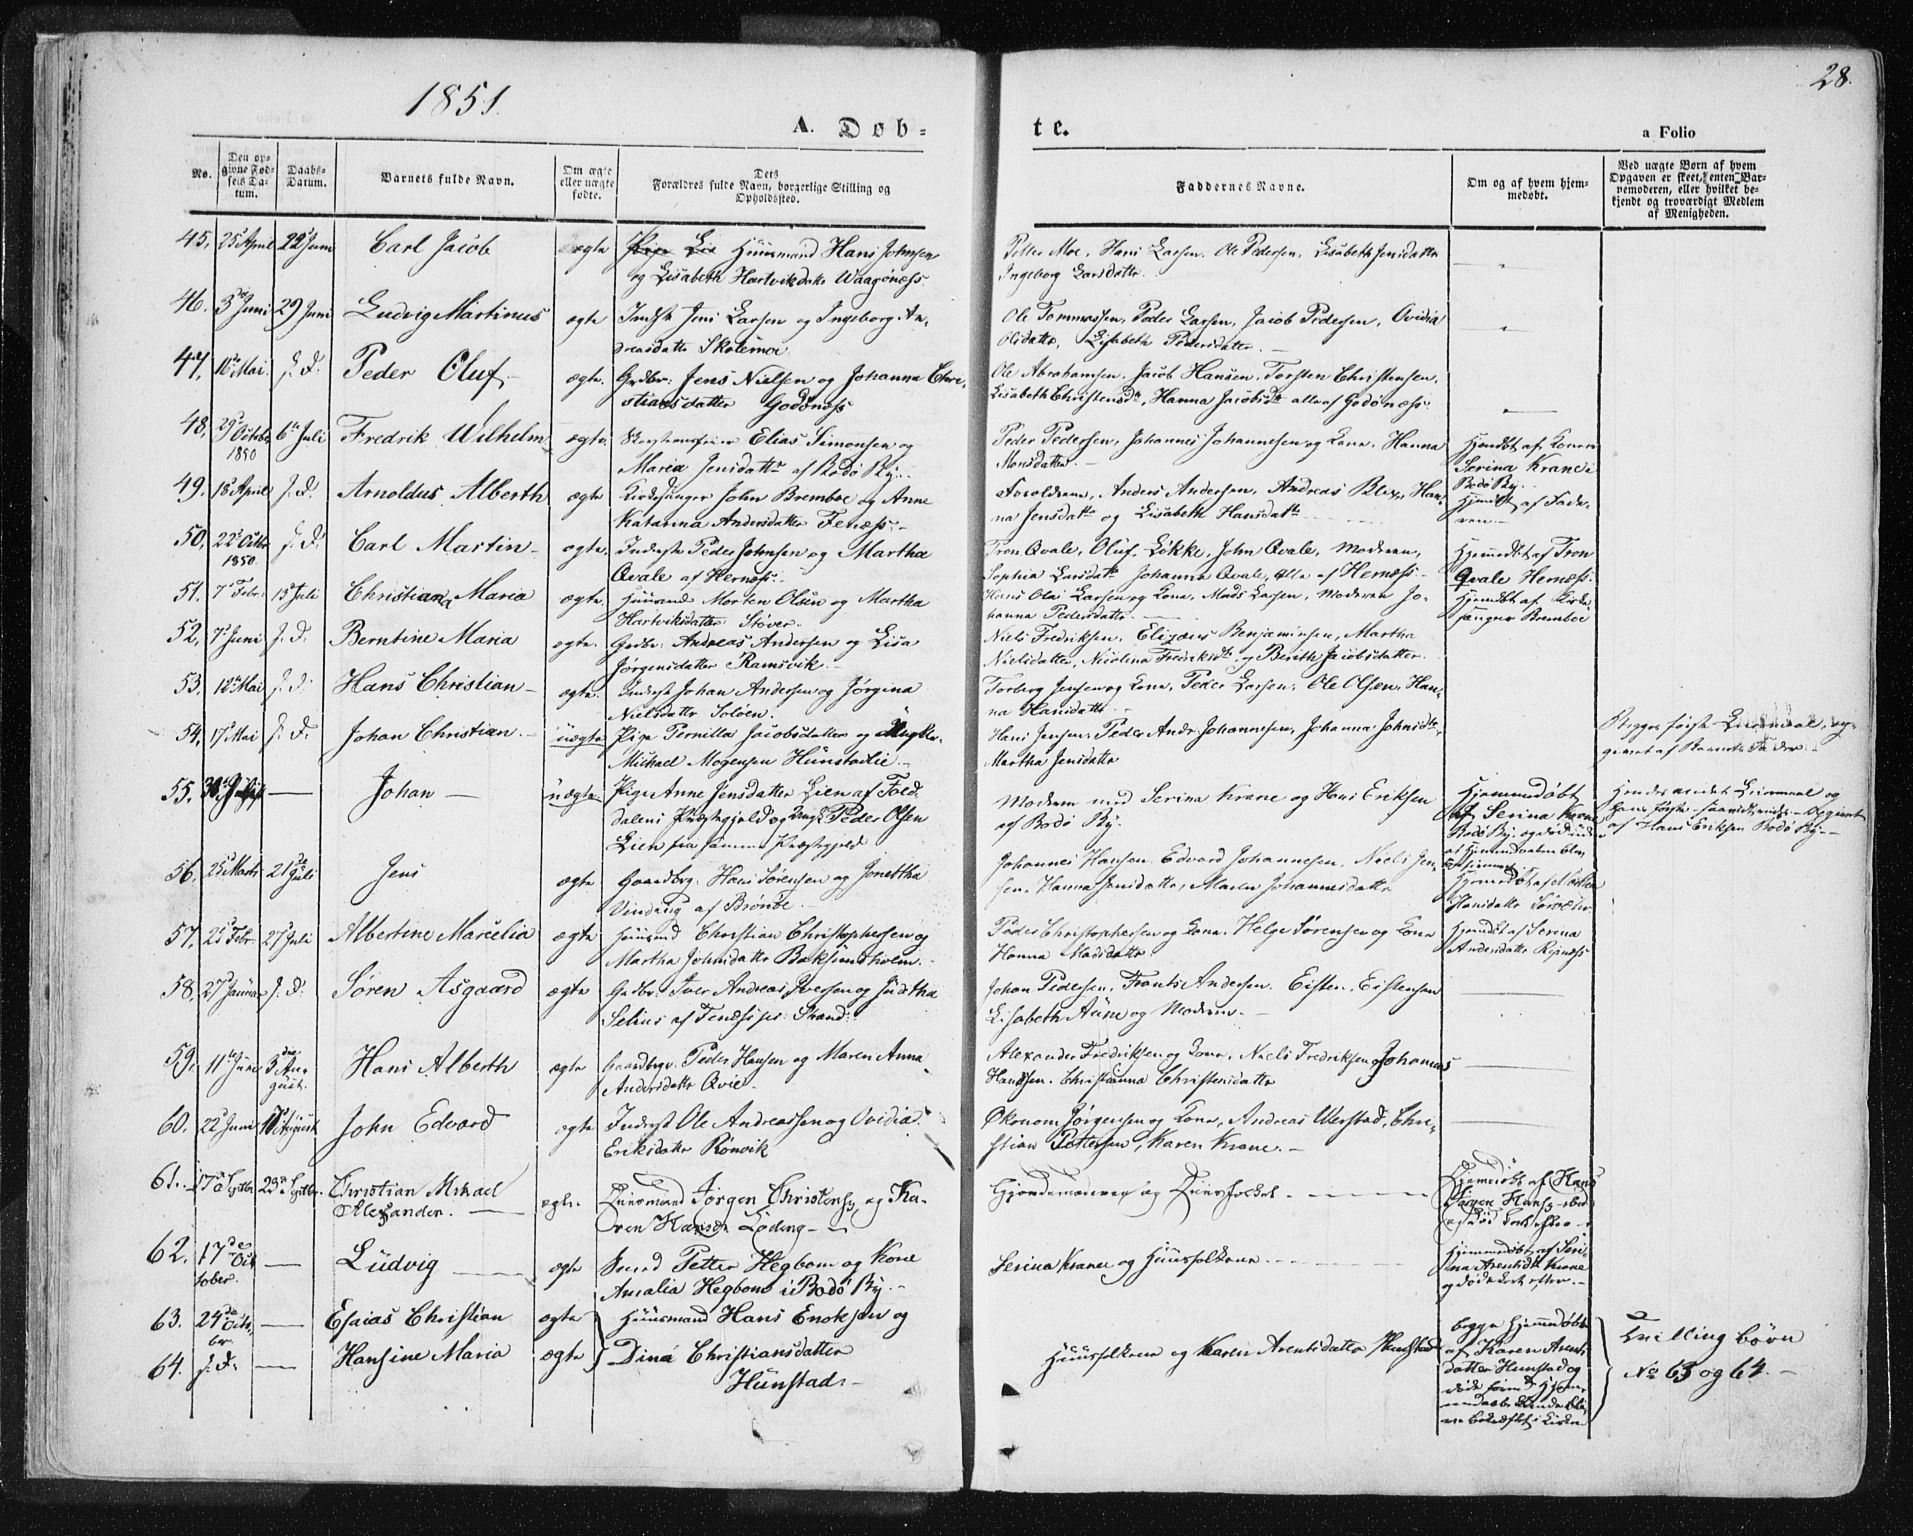 1851.
28.
A. Døb-
te.
a Folio
No.
Den op-
givne Fød-
sels Da-
tum.
Daabs-
Datum.
Barnets fulde Navn.
Om ægte
eller uægte
fødte.
Dets
Forældres fulde Navn, borgerlige Stilling og
Opholdssted.
Faddernes Navne.
Om og af hvem hjem-
medøbt.
Ved uægte Børn af hvem
Opgaven er skeet, enten Bar-
nemoderen, eller hvilket be-
kjendt og troværdigt Medlem
af Menigheden.
45. 25 April 22 Juni Carl Jacob ægte Huusmand Hans Johnsen
og Lisabeth Hartviksdatr Waagønæss
Petter Moe, Hans Larsen, Ole Pedersen, Lisabeth Jensdatter
Ingeborg Larsdatter
46. 3 Juni 29 Juni Ludvig Martinus ægte Inderst Jens Larsen og Ingeborg An-
dreasdatter Skolemoe
Ole Tommassen, Peder Larsen, Jacob Pedersen, Ovidia
Olsdatter, Lisabeth Pedersdatter
47. 16 Mai s. D. Peder Oluf ægte. Grdbr: Jens Nielsen og Johanna Chri-
stiansdatter Godønæss
Ole Abrahamsen, Jacob Hansen, Torsten Christensen,
Lisabeth Christensdtr, Hanna Jacobsdtr alle af Godønæss
48. 29 October 1850 6te Juli Fredrik Wilhelm ægte Elias Simonsen og
Maria Jensdattr af Bodø By
Peder Pedersen, Johannes Johannesen og Kone, Hanna
Monsdatter
Hjemdøbt af Konen
Serina Krane i
Bodø By.
49. 18 April s. D. Arnoldus Alberth ægte Kirkesanger John Bremboe og Anne
Katarina Andersdatter Fenæss
Forældrene, Anders Andersen, Andreas Blix, Han-
na Jensdattr og Lisabeth Hansdattr
Hjemdøbt af Fade-
ren
50. 22 Octbr 1850 s. D. Carl Martin ægte. Inderst Peder Johnsen og Martha
Qvale af Hernæss
Tron Qvale, Oluf Løkke, John Qvale, Moderen,
Sophia Larsdattr Johanna Qvale, Alle af Hernæss
Hjemmedøbt af Tron
Qvale Hernæss
51. 7 Febr: 13 Juli Christianna Maria ægte. Huusmd Morten Olsen og Martha
Hartviksdatter Støver
Hans Ola Larsen og Kone, Mads Larsen, Moderen Jo-
hanna Pedersdatter
Hjemdøbt af Kirke-
sanger Bremboe
52. 7 Juni s. D. Berntine Maria ægte. Grdbr: Andreas Andersen og Lisa
Jørgensdatter Ramsvik
Niels Fredriksen, Elizæus Benjaminsen, Martha
Nielsdatter, Nicolina Fredriksdtr og Berith Jacobsdatter
53. 12 Mai s. D. Hans Christian ægte. Inderst Johan Andersen og Jørgina
Nielsdatter Soløen
Torberg Jensen og Kone, Peder Larsen, Ole Olsen, Han-
na Hansdatter
54. 17 Mai s. D. Johan Christian uægte Pige Pernilla Jacobsdatter og Ungkl.
Michael Mogensen Hunstadlie
Hans Jensen, Peder Andr. Johannesen, Johanna Johnsdtr
Martha Jensdatter
Begges første Leiermaal, op-
givet af Barnets Fader
55. Johan uægte. Pige Anne Jensdatter Lien af Fold-
dalens Præstegjeld og Ungk: Peder Olsen
Lien fra samme Præstegjeld
Moderen med Serina Krane og Hans Eriksen
af Bodø By.
Hjemmedøbt
af Serina Krane
Bodø By, og død
Hendes andet Leiermaal og
hans første
af Hans Eriksen Bodø By
56. 25 Marts 21 Juli Jens ægte Gaardbrg. Hans Sørensen og Jonettha
Vinding af Brønøe
Johannes Hansen, Edvard Johannesen, Niels Jen-
sen, Hanna Jensdatter, Maren Johannesdatter
Hjemmedøbt af
Hansdatter
57. 25 Febr. 27 Juli Albertine Marcelia ægte Huusmd Christian Christophersen og
Martha Johnsdatter Baksundholm
Peder Christophersen og Kone, Helge Sørensen og Kone
Hanna Madsdatter
Hjemdøbt af Serina
Andersdatter Ripnæss
58. 27 Januar s. D. Søren Asgaard ægte Grdbr. Iver Andreas Iversen og Juditha
Selius af Fenæs pr: Strand
Johan Pedersen, Frants Andersen, Eisten Eistensen
Lisabeth Aune og Moderen
59. 11te Juni 3die Au-
gust. Hans Alberth ægte Gaardbrgr. Peder Hansen og Maren Anna
Andersdatter Qvie
Alexander Fredriksen og Kone, Niels Fredriksen og Johannes
Hanssen, Christianna Christensdatter
60. 22 Juni August John Edvard ægte Inderst Ole Andreassen og Ovidia
Eriksdatter Rønvik
Økonom Jørgensen og Kone, Andreas Werstad, Chri-
stian Pettersen, Karen Krane.
61. 17 Septbr. 23 Septbr. Christian Mikael
Alexander ægte. Huusmand Jørgen Christensen og Ka-
ren Hansdr Løding
Gjordemoderen og Huusfolket
Hjemdøbt af Hans
Jørgen Hans
62. 17de Oc-
tober. Ludvig ægte Petter Hegbom og Kone
Amalia Hegbom i Bodø By.
Serina Krane og Huusfolkene
Hjemmedøbt af Seri-
na Arentsdtr Krane
og døde kort efter.
63. 24de Octo-
ber Esaias Christian ægte Huusmand Hans Enoksen og
64. s. D. Hansine Maria ægte Dina Christiansdatter
Hunstad
Huusfolkene og Karen Arentsdatter Hunstad
begge Hjemmedøbt
af Karen Arents-
datter Hunstad og
døde
Tvillingbørn
No 63 og 64.